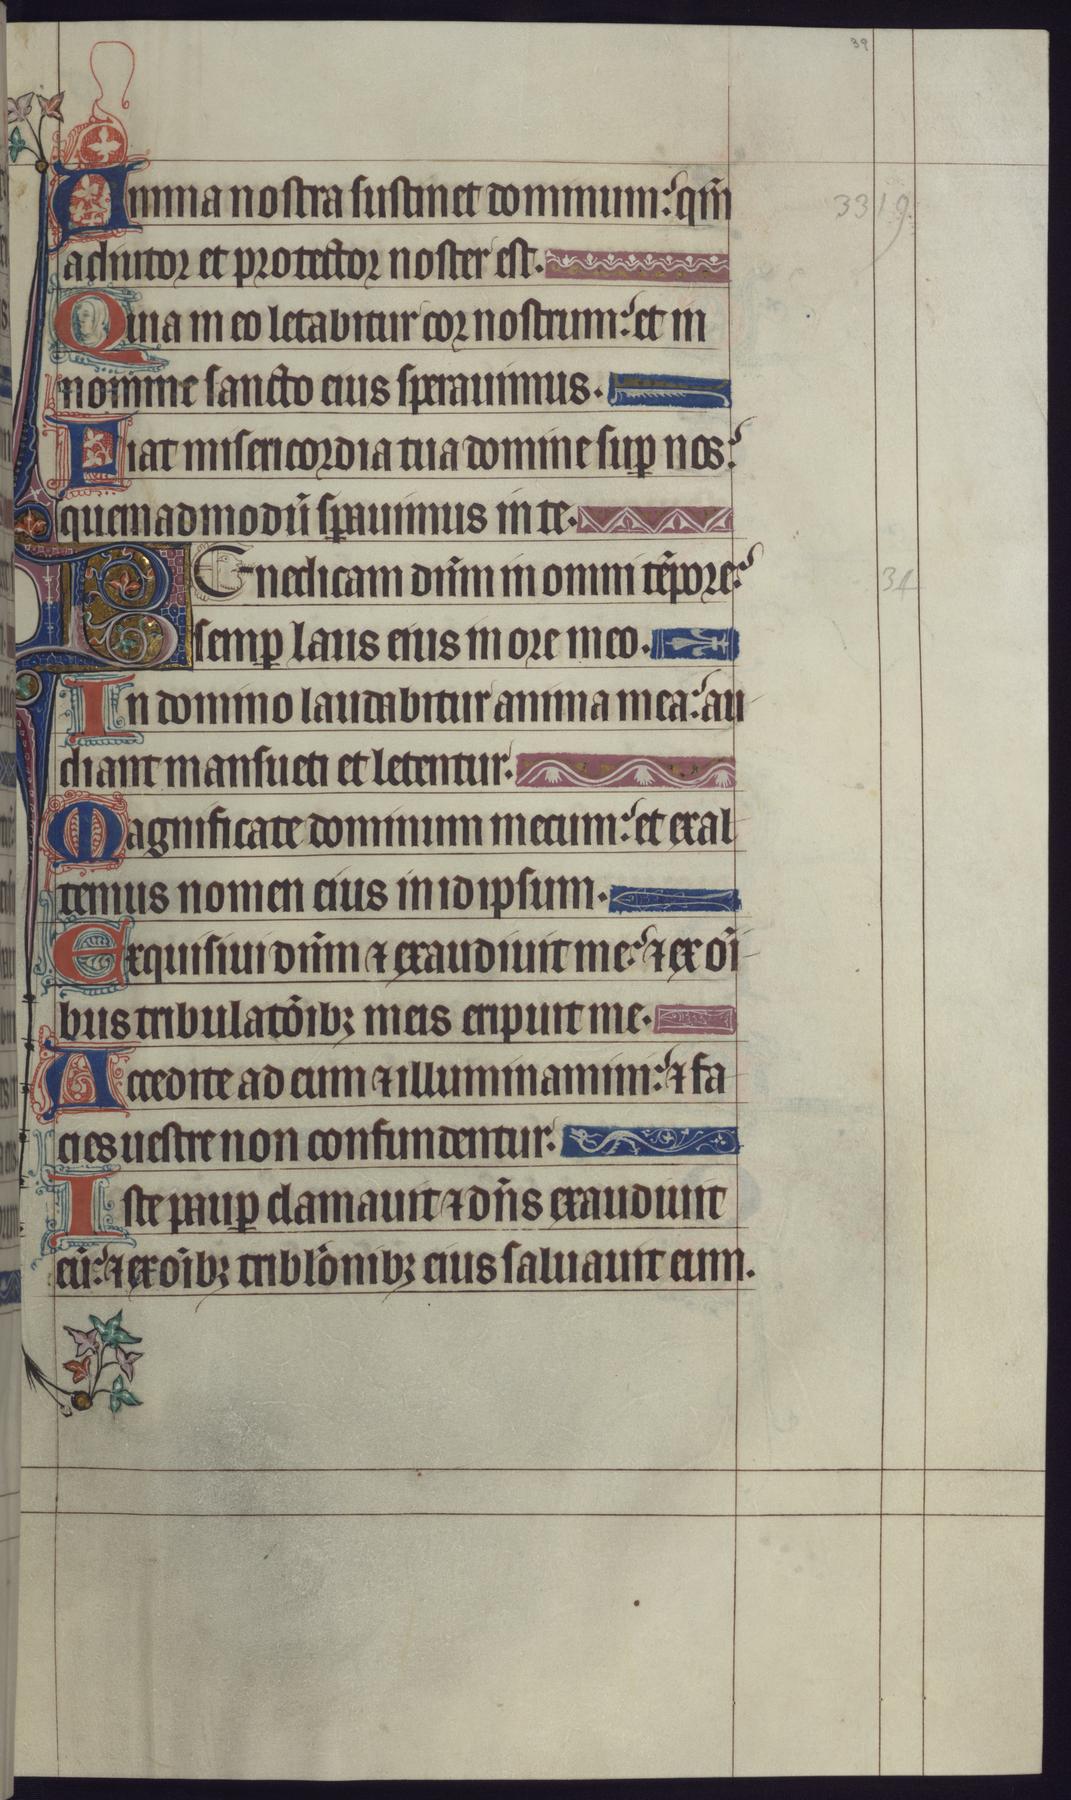 39
Anima nostra sustinet dominum: qm̄
adiutor et protector noster est.
3319
Quia in eo letabitur cor nostrum: et in
nomine sancto eius sperauimus.
Fiat misericordia tua domine sup̱ nos:
quemadmodū sp̱auimus in te.
BEnedicam dn̄m in omni tēpore:
34
semp̱ laus eius in ore meo.
In domino laudabitur anima mea: au
diant mansueti et letentur.
Magnificate dominum mecum: et exal
temus nomen eius in idipsum.
Exquisiui dn̄m ⁊ exaudiuit me: ⁊ ex oī
bus tribulatōibꝫ meis eripuit me.
Accedite ad eum ⁊ illuminamini: ⁊ fa
cies uestre non confundentur.
Iste paup̱ clamauit ⁊ dn̄s exaudiuit
eū: ⁊ ex oībꝫ triblōnibꝫ eius saluauit eum.